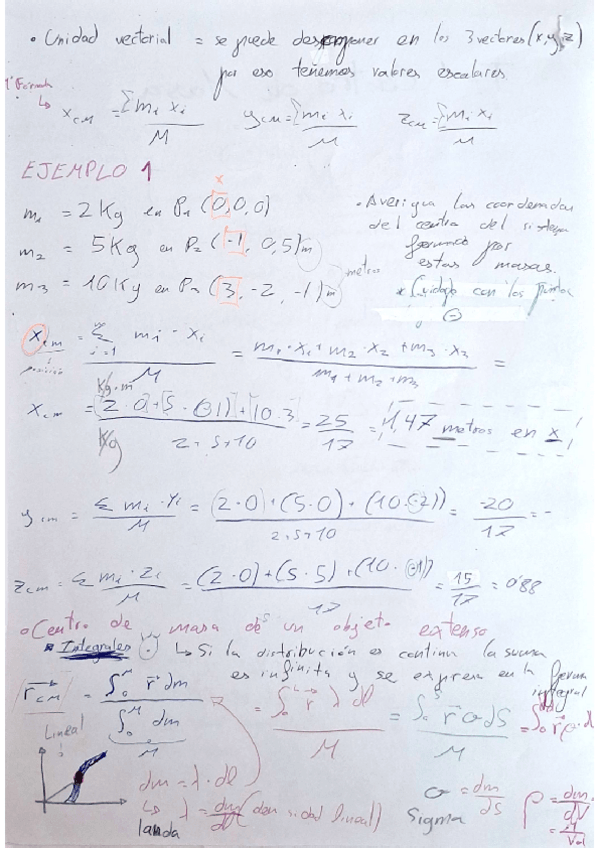 • Unidad vectorial = se puede descomponer en los 3 vectores (x, y, z)
por eso tenemos valores escalares.
1ª Fórmula
↳ x_CM = Σ m_i x_i / M   y_CM = Σ m_i x_i / M   z_CM = Σ m_i x_i / M
EJEMPLO 1
x
m₁ = 2 Kg en P₁ (0, 0, 0)
m₂ = 5 Kg en P₂ (-1, 0, 5) m
m₃ = 10 Kg en P₃ (3, -2, -1) m
metros
• Averigua las coordenadas
del centro del sistema
formado por
estas masas.
* Cuidado con los
⊖
x_cm = Σ i=1 m_i · x_i / M = m₁ · x₁ + m₂ · x₂ + m₃ · x₃ / m₁ + m₂ + m₃ =
posición
Kg·m
Kg
x_cm = [2·0] + [5·(-1)] + [10·3] / 2+5+10 = 25/17 = 1,47 metros en x
y_cm = Σ m_i · y_i / M = (2·0) + (5·0) + (10·(-2)) / 2+5+10 = -20/17 = -
z_cm = Σ m_i · z_i / M = (2·0) + (5·5) + (10·(-1)) / 17 = 15/17 = 0'88
○ Centro de masa de un objeto extenso
* Integrales ↳ Si la distribución es continua la suma
es infinita y se expresa en la forma
integral
r_CM = ∫₀ᴹ r dm / ∫₀ᴹ dm = ∫₀ᴸ r λ dl / M = ∫₀ˢ r σ dS / M = ∫₀ r ρ · d
M
Lineal
dm = λ · dl
↳ λ = dm/dl (densidad lineal)
landa
σ = dm/dS
sigma
ρ = dm/dV
= M/Vol